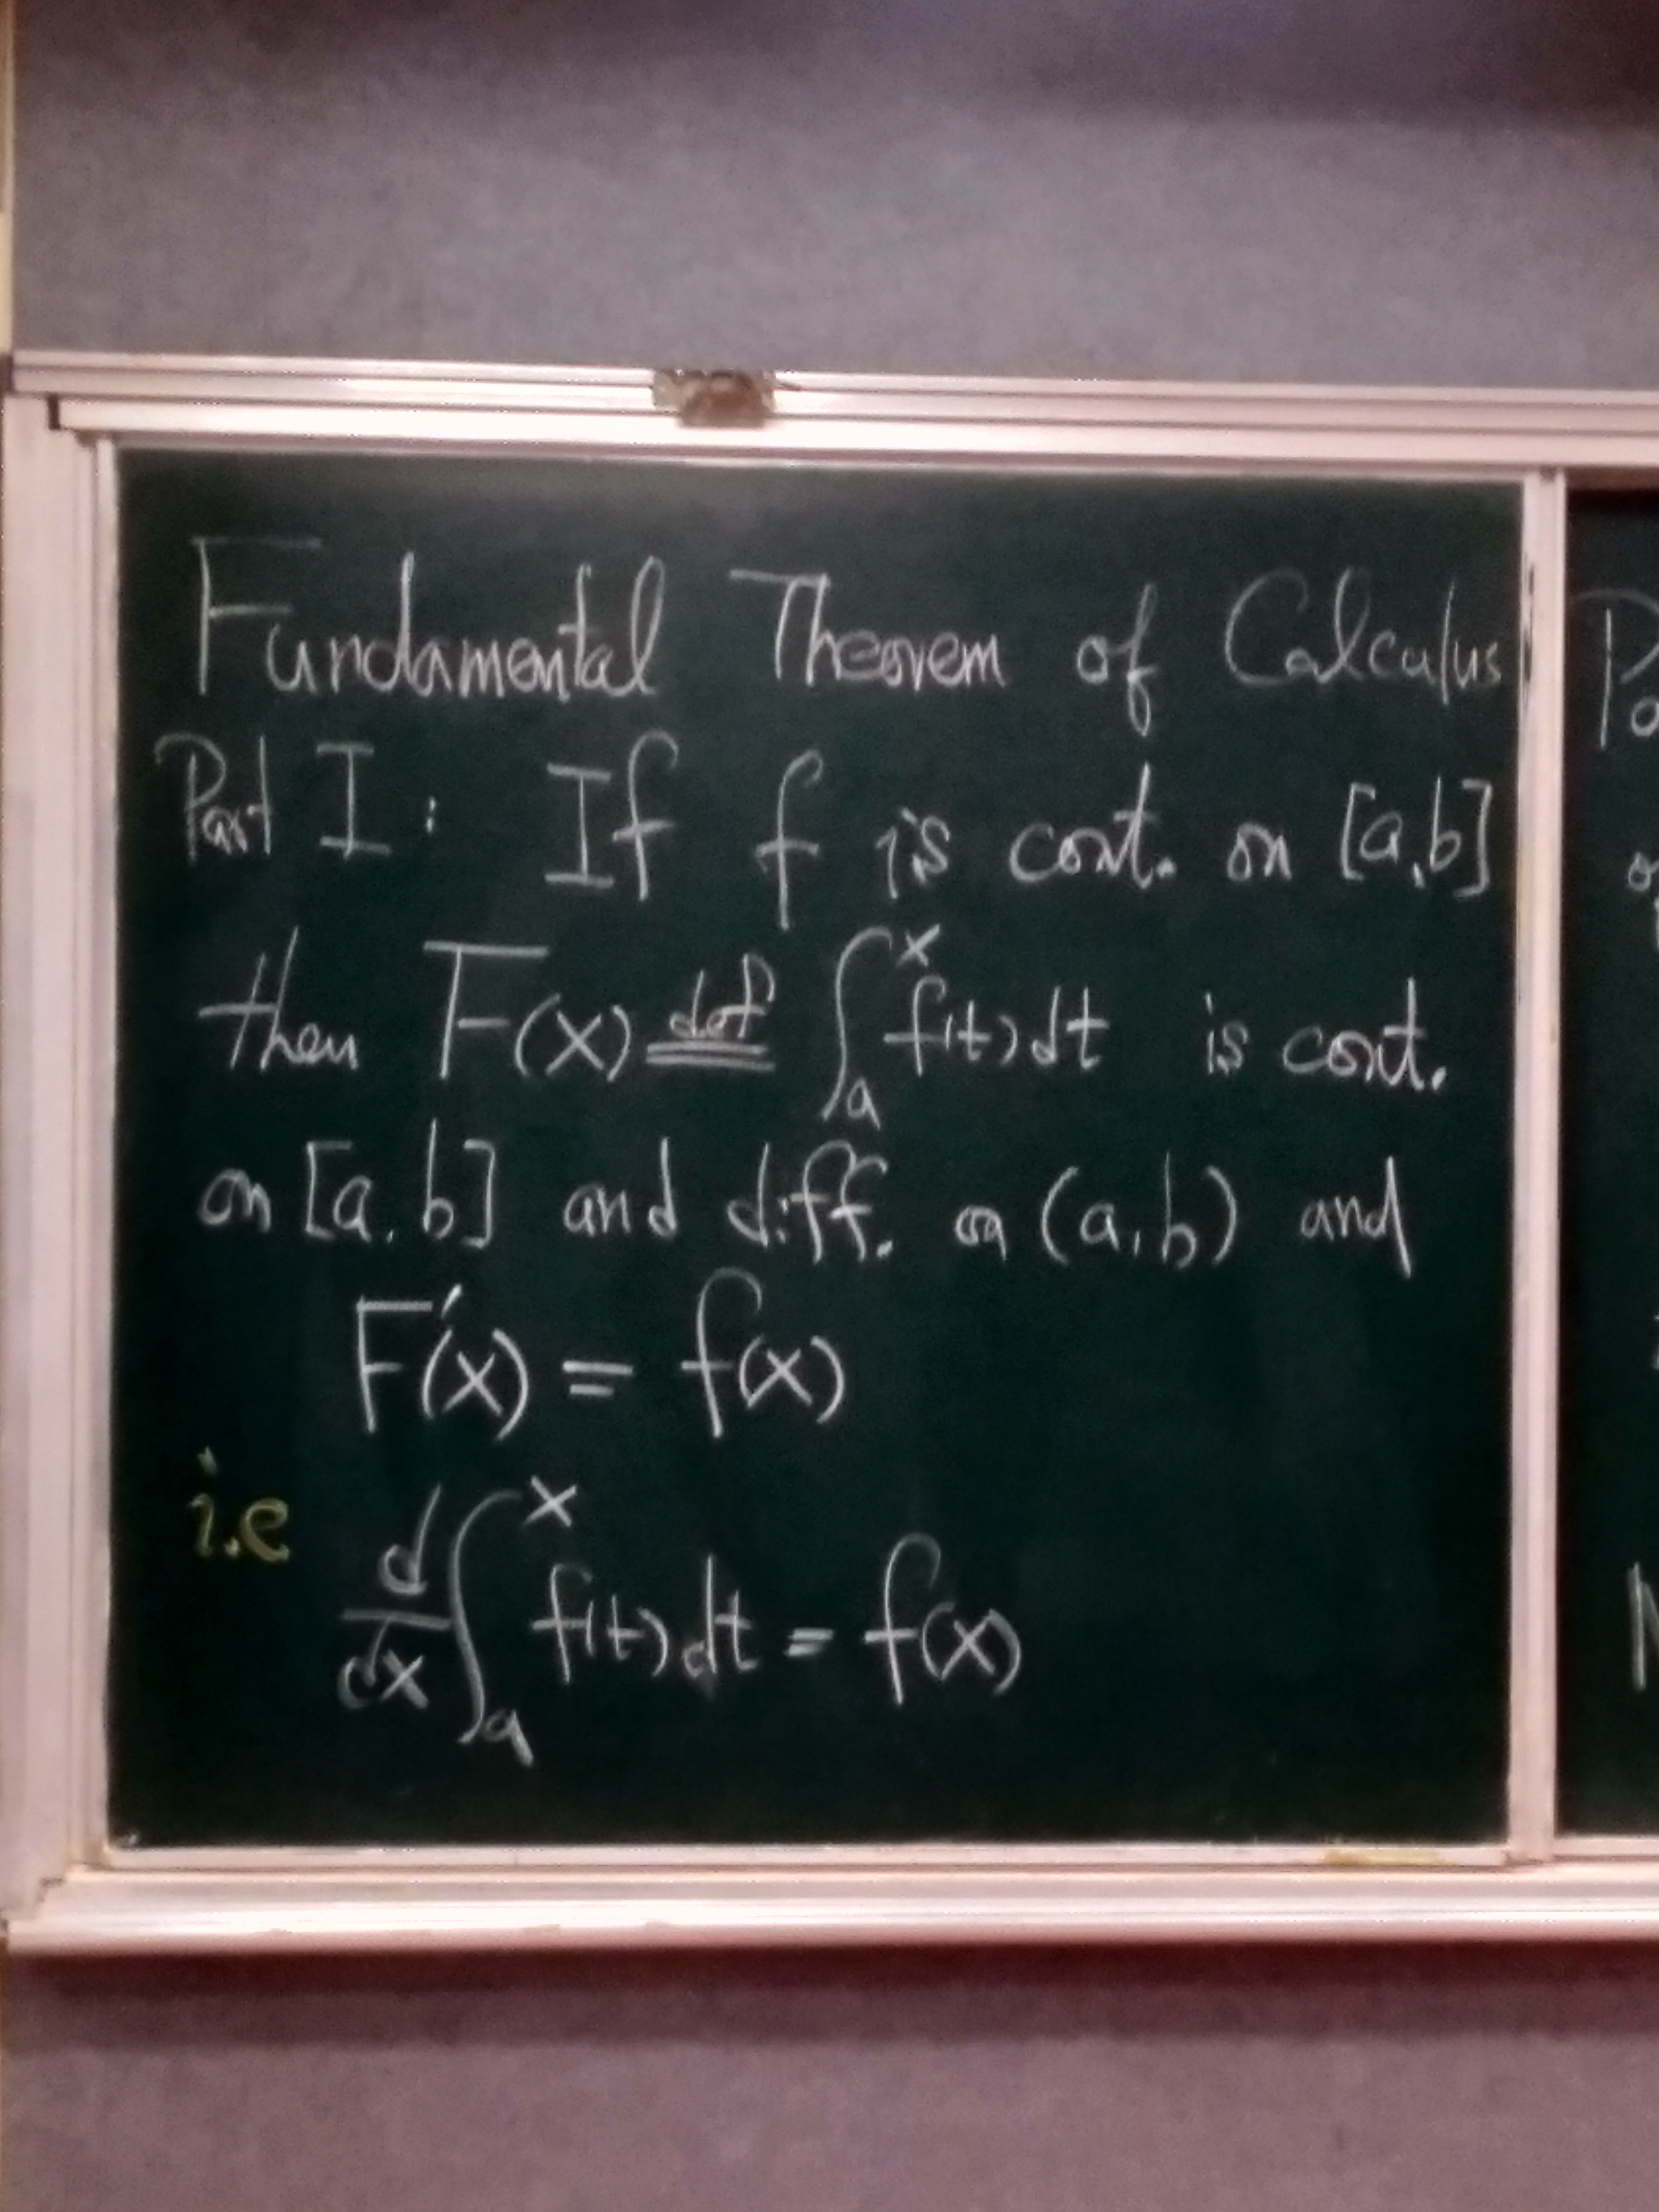 Fundamental Theorem of Calculus
Part I: If f is cont. on [a,b]
then F(x) def= ∫ₐˣ f(t)dt is cont.
on [a,b] and diff. on (a,b) and
F'(x) = f(x)
i.e
d/dx ∫ₐˣ f(t)dt = f(x)